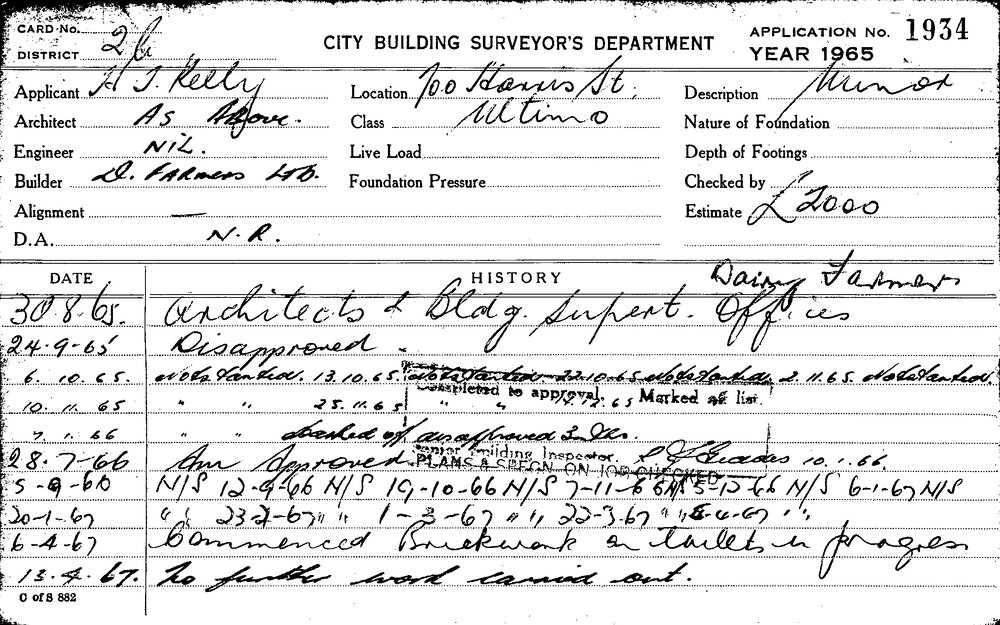 CARD No.
DISTRICT 2b
CITY BUILDING SURVEYOR'S DEPARTMENT
APPLICATION No. 1934
YEAR 1965
Applicant H J. Kelly Location 100 Harris St. Description Minor
Architect As Above. Class Ultimo Nature of Foundation
Engineer NIL. Live Load Depth of Footings
Builder D. FARMERS LTD. Foundation Pressure Checked by
Alignment — Estimate £ 2000
D.A. N.R.
DATE HISTORY Dairy Farmers
30.8.65. Architects & Bldg. Supert. Offices
24-9-65 Disapproved.
6. 10. 65. Not Started. 13.10.65. Not Started 22.10.65 Not Started 2.11.65. Not Started.
10. 11. 65 " " 25.11.65 " " 12.65 Marked off list.
Completed to approval.
7. 1. 66 " " Marked off disapproved
Senior Building Inspector. 10.1.66.
28-7-66 Am Approved PLANS & SPECN. ON JOB CHECKED
5-9-66 N/S 12-9-66 N/S 19-10-66 N/S 7-11-66 N/S 5-12-66 N/S 6-1-67 N/S
20-1-67 " " 23-2-67 " " 1-3-67 " " 22-3-67 " " 5-4-67 " "
6-4-67 Commenced Brickwork on toilets in progress
13.4.67. No further work carried out.
C of S 882